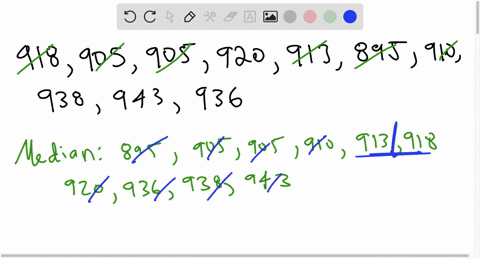 918, 905, 905, 920, 913, 895, 910,
938, 943, 936
Median: 895, 905, 905, 910, 913, 918
920, 936, 938, 943